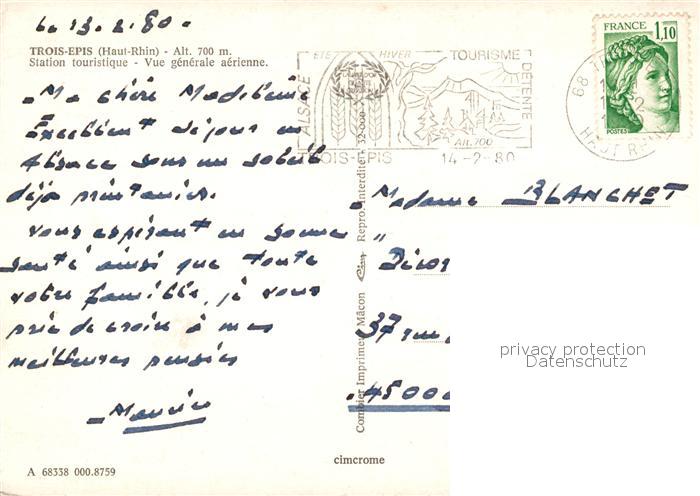 le 13.2.80.
TROIS-EPIS (Haut-Rhin) - Alt. 700 m.
Station touristique - Vue générale aérienne.
Ma chère Madeleine
Excellent séjour en
Alsace sous un soleil
déjà printanier.
Vous espérant en bonne
santé ainsi que toute
votre famille, je vous
prie de croire à mes
meilleures pensées
Maurice
A 68338 000.8759
Combier Imprimeur Mâcon Cim Repro. Interdite - 32.000 X
cimcrome
ÉTÉ HIVER TOURISME
ALSACE DÉTENTE
Alt. 700
TROIS-EPIS 14-2-80
FRANCE
1,10
POSTES
68
HAUT RHIN
Madame BLANCHET
"
37 rue
45000
privacy protection
Datenschutz